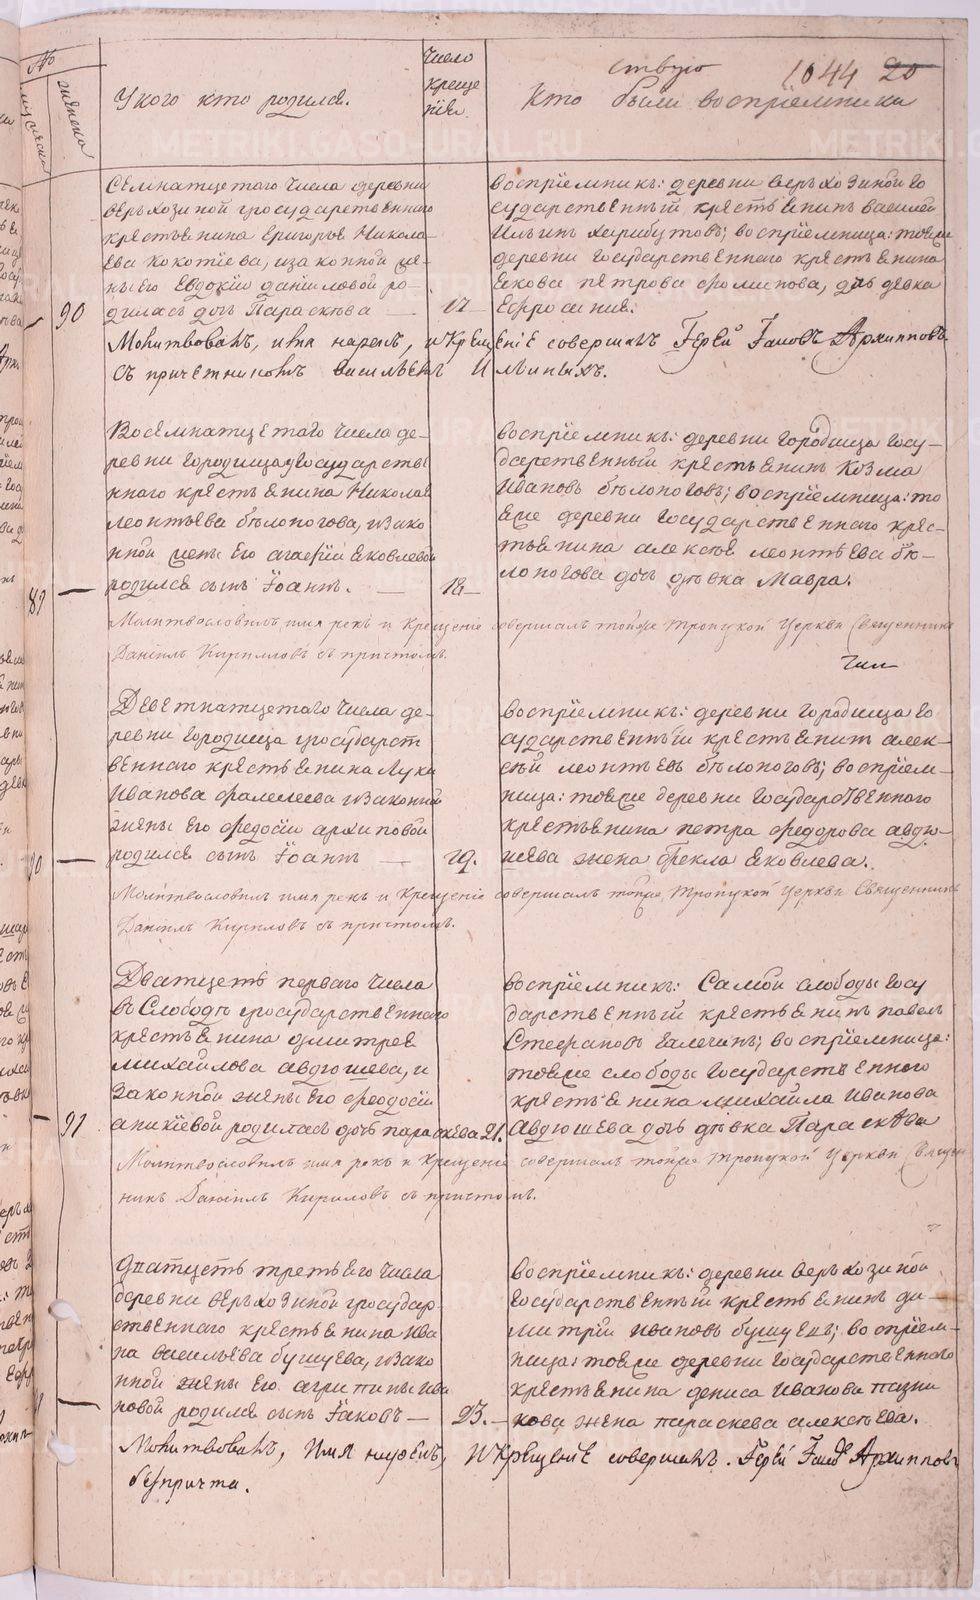 №
мужеска
женска
У кого кто родился.
Число
креще
нія.
ствую
1044 20
Кто были воспріемники
Семнатцетаго числа деревни
Верьхозиной государственнаго
крестьенина Григорья Никола
ева Кокотѣева, изаконной же
ны Его Евдокіи Даниловой ро
дилась дочь Параскѣва
90
17
воспріемникъ: деревни Верьхозиной го
сударственный крестьенинъ Василей
Ильинъ Харибутовъ; воспріемница: тоеже
деревни государственнаго крестьенина
Екова Петрова Фоминова, дочь девка
Ефросинія.
Молитвовалъ, имя нарекъ, и Крещеніе совершалъ Іерей Іаковъ Архипповъ
съ причетникомъ Васильемъ Ильиныхъ.
Восемнатцетаго числа де-
ревни Городища государстве
ннаго крестьенина Николая
Леонтьева Бѣлоногова, изако
нной жены Его Агафіи Ековлевой
родился сынъ Іоаннъ.
89
18
воспріемникъ: деревни Городища госу-
дарственный крестьенинъ Козма
Ивановъ Бѣлоноговъ; воспріемница: то
еже деревни государственнаго крес-
тьенина Алексѣя Леонтьева Бѣ-
лоногова дочь дѣвка Мавра.
Молитвословилъ имя рекъ и Крещеніе совершалъ тойже Троицкой Церкви Священникъ
Даніилъ Кириловъ съ причтомъ.
Деветнатцетаго числа де-
ревни Городища государст
веннаго крестьенина Луки
Иванова Фалелеева изаконной
жены Его Федосіи Архиповой
родился сынъ Іоаннъ
90
19.
воспріемникъ: деревни Городища го
сударственный крестьенинъ Алек-
сѣй Леонтьевъ Бѣлоноговъ; воспріем-
ница: тоеже деревни государственнаго
крестьенина Петра Федорова Авдю-
шева жена Фекла Ековлева.
Молитвословилъ имя рекъ и Крещеніе совершалъ тойже Троицкой Церкви Священникъ
Даніилъ Кириловъ съ причтомъ.
Дватцеть перваго числа
въ Слободѣ государственнаго
крестьенина Дмитрея
Михайлова Авдюшева, и
законной жены Его Феодосіи
Аникіевой родилась дочь Параскева 21.
91
воспріемникъ: Самой слободы госу
дарственный крестьенинъ Павелъ
Стефановъ Галечинъ; воспріемница:
тоеже слободы государственнаго
крестьенина Михайла Иванова
Авдюшева дочь дѣвка Параскева
Молитвословилъ имя рекъ и Крещеніе совершалъ тойже Троицкой Церкви Священ
никъ Даніилъ Кириловъ съ причтомъ.
Дватцеть третьего числа
деревни Верьхозиной государ-
ственнаго крестьенина Ива
на Васильева Бушуева, изако
нной жены Его Агрипины Ива
новой родился сынъ Іаковъ
23.
воспріемникъ: деревни Верьхозиной
государственный крестьенинъ Ди-
митрій Ивановъ Бушуевъ; воспріем-
ница: тоеже деревни государственнаго
крестьенина Дениса Иванова Пазни
кова жена Параскева Алексѣева.
Молитвовалъ, Имя нарекъ, И Крещеніе совершалъ. Іерей Іаковъ Архипповъ
безпричта.